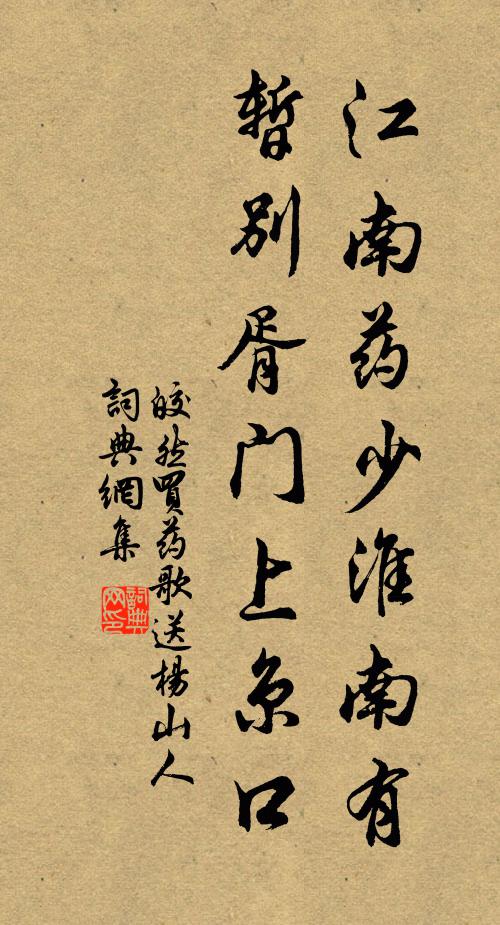 江南药少淮南有
暂别胥门上京口
皎然買药歌送楊山人
詞典網集
詞典网印